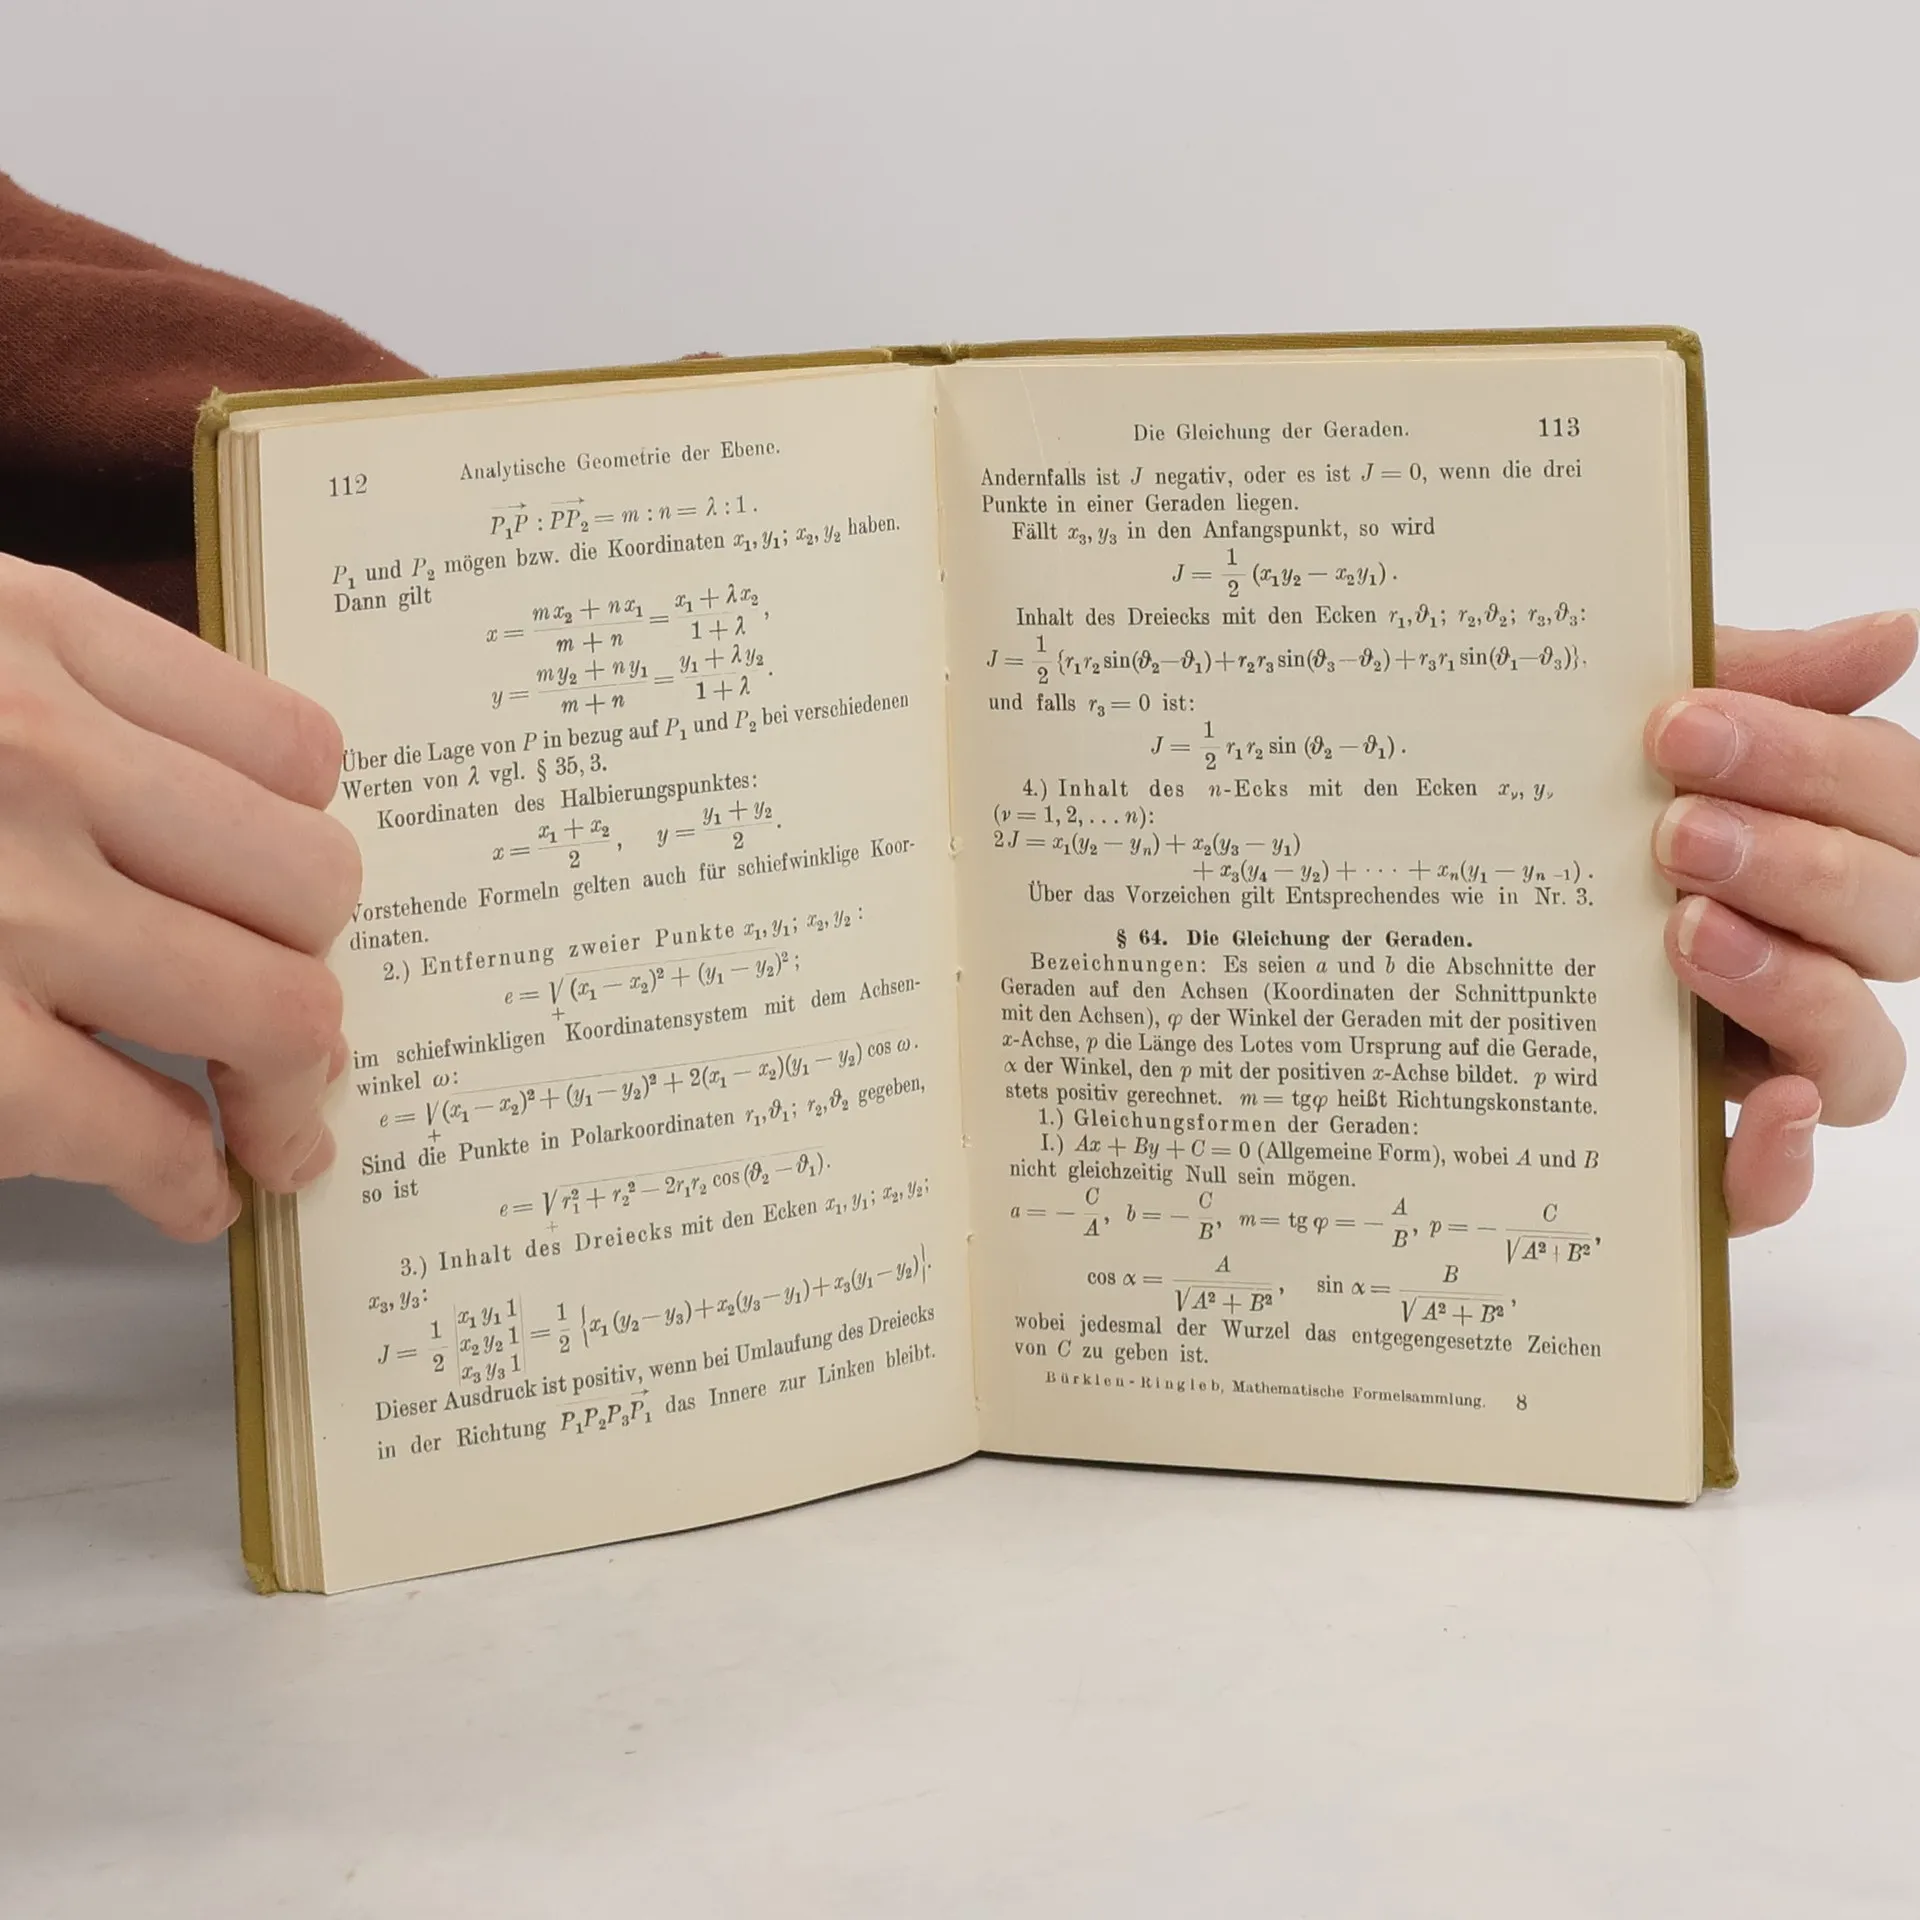 112 Analytische Geometrie der Ebene.
P₁P : PP₂ = m : n = λ : 1.
P₁ und P₂ mögen bzw. die Koordinaten x₁, y₁; x₂, y₂ haben.
Dann gilt
x = (mx₂ + nx₁)/(m + n) = (x₁ + λx₂)/(1 + λ),
y = (my₂ + ny₁)/(m + n) = (y₁ + λy₂)/(1 + λ).
Über die Lage von P in bezug auf P₁ und P₂ bei verschiedenen
Werten von λ vgl. § 35, 3.
Koordinaten des Halbierungspunktes:
x = (x₁ + x₂)/2, y = (y₁ + y₂)/2.
Vorstehende Formeln gelten auch für schiefwinklige Koor-
dinaten.
2.) Entfernung zweier Punkte x₁, y₁; x₂, y₂:
e = √((x₁ − x₂)² + (y₁ − y₂)²;
+
im schiefwinkligen Koordinatensystem mit dem Achsen-
winkel ω:
e = √(x₁ − x₂)² + (y₁ − y₂)² + 2(x₁ − x₂)(y₁ − y₂) cos ω.
+
Sind die Punkte in Polarkoordinaten r₁, ϑ₁; r₂, ϑ₂ gegeben,
so ist
e = √r₁² + r₂² − 2r₁r₂ cos (ϑ₂ − ϑ₁).
+
3.) Inhalt des Dreiecks mit den Ecken x₁, y₁; x₂, y₂;
x₃, y₃:
J = 1/2 |x₁ y₁ 1; x₂ y₂ 1; x₃ y₃ 1| = 1/2 {x₁(y₂ − y₃) + x₂(y₃ − y₁) + x₃(y₁ − y₂)}.
Dieser Ausdruck ist positiv, wenn bei Umlaufung des Dreiecks
in der Richtung P₁P₂P₃P₁ das Innere zur Linken bleibt.
Die Gleichung der Geraden. 113
Andernfalls ist J negativ, oder es ist J = 0, wenn die drei
Punkte in einer Geraden liegen.
Fällt x₃, y₃ in den Anfangspunkt, so wird
J = 1/2 (x₁y₂ − x₂y₁).
Inhalt des Dreiecks mit den Ecken r₁, ϑ₁; r₂, ϑ₂; r₃, ϑ₃:
J = 1/2 {r₁r₂ sin(ϑ₂ − ϑ₁) + r₂r₃ sin(ϑ₃ − ϑ₂) + r₃r₁ sin(ϑ₁ − ϑ₃)}.
und falls r₃ = 0 ist:
J = 1/2 r₁r₂ sin (ϑ₂ − ϑ₁).
4.) Inhalt des n-Ecks mit den Ecken xᵥ, yᵥ
(ν = 1, 2, ... n):
2J = x₁(y₂ − yₙ) + x₂(y₃ − y₁)
+ x₃(y₄ − y₂) + ··· + xₙ(y₁ − yₙ₋₁).
Über das Vorzeichen gilt Entsprechendes wie in Nr. 3.
§ 64. Die Gleichung der Geraden.
Bezeichnungen: Es seien a und b die Abschnitte der
Geraden auf den Achsen (Koordinaten der Schnittpunkte
mit den Achsen), φ der Winkel der Geraden mit der positiven
x-Achse, p die Länge des Lotes vom Ursprung auf die Gerade,
α der Winkel, den p mit der positiven x-Achse bildet. p wird
stets positiv gerechnet. m = tgφ heißt Richtungskonstante.
1.) Gleichungsformen der Geraden:
I.) Ax + By + C = 0 (Allgemeine Form), wobei A und B
nicht gleichzeitig Null sein mögen.
a = − C/A, b = − C/B, m = tg φ = − A/B, p = − C/√(A² + B²),
cos α = A/√(A² + B²), sin α = B/√(A² + B²),
wobei jedesmal der Wurzel das entgegengesetzte Zeichen
von C zu geben ist.
Bürklen-Ringleb, Mathematische Formelsammlung. 8